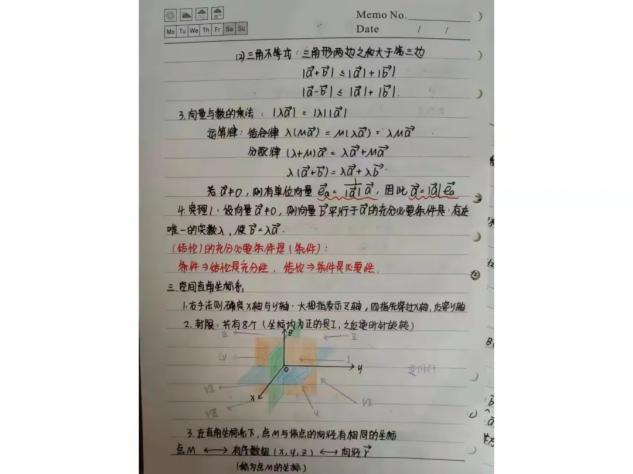 Memo No.
Mo Tu We Th Fr Sa Su
Date / /
(2) 三角不等式：三角形两边之和大于第三边
|a⃗+b⃗| ≤ |a⃗|+|b⃗|
|a⃗-b⃗| ≤ |a⃗|+|b⃗|.
3. 向量与数的乘法：|λa⃗| = |λ||a⃗|
运算律：结合律 λ(μa⃗) = μ(λa⃗) = λμa⃗
分配律 (λ+μ)a⃗ = λa⃗+μa⃗
λ(a⃗+b⃗) = λa⃗+λb⃗
若 a⃗≠0，则有单位向量 e⃗a = 1/|a⃗| a⃗，因此 a⃗=|a⃗|e⃗a
4. 定理1：设向量a⃗≠0，则向量b⃗平行于a⃗的充分必要条件是：存在
唯一的实数λ，使b⃗=λa⃗.
(结论)的充分必要条件是(条件)：
条件⇒结论是充分性，结论⇒条件是必要性.
三. 空间直角坐标系
1. 右手法则确定x轴与y轴：大拇指表示z轴，四指先穿过x轴，为穿y轴
2. 卦限：共有8个(坐标均为正的是I，之后逆时针旋转)
z
III II
IV I
o y
x
VII
VIII V VI
3. 在直角坐标系下，点M与该点的向径有相同的坐标
点M ⟷ 有序数组(x, y, z) ⟷ 向径 r⃗
(称为点M的坐标)